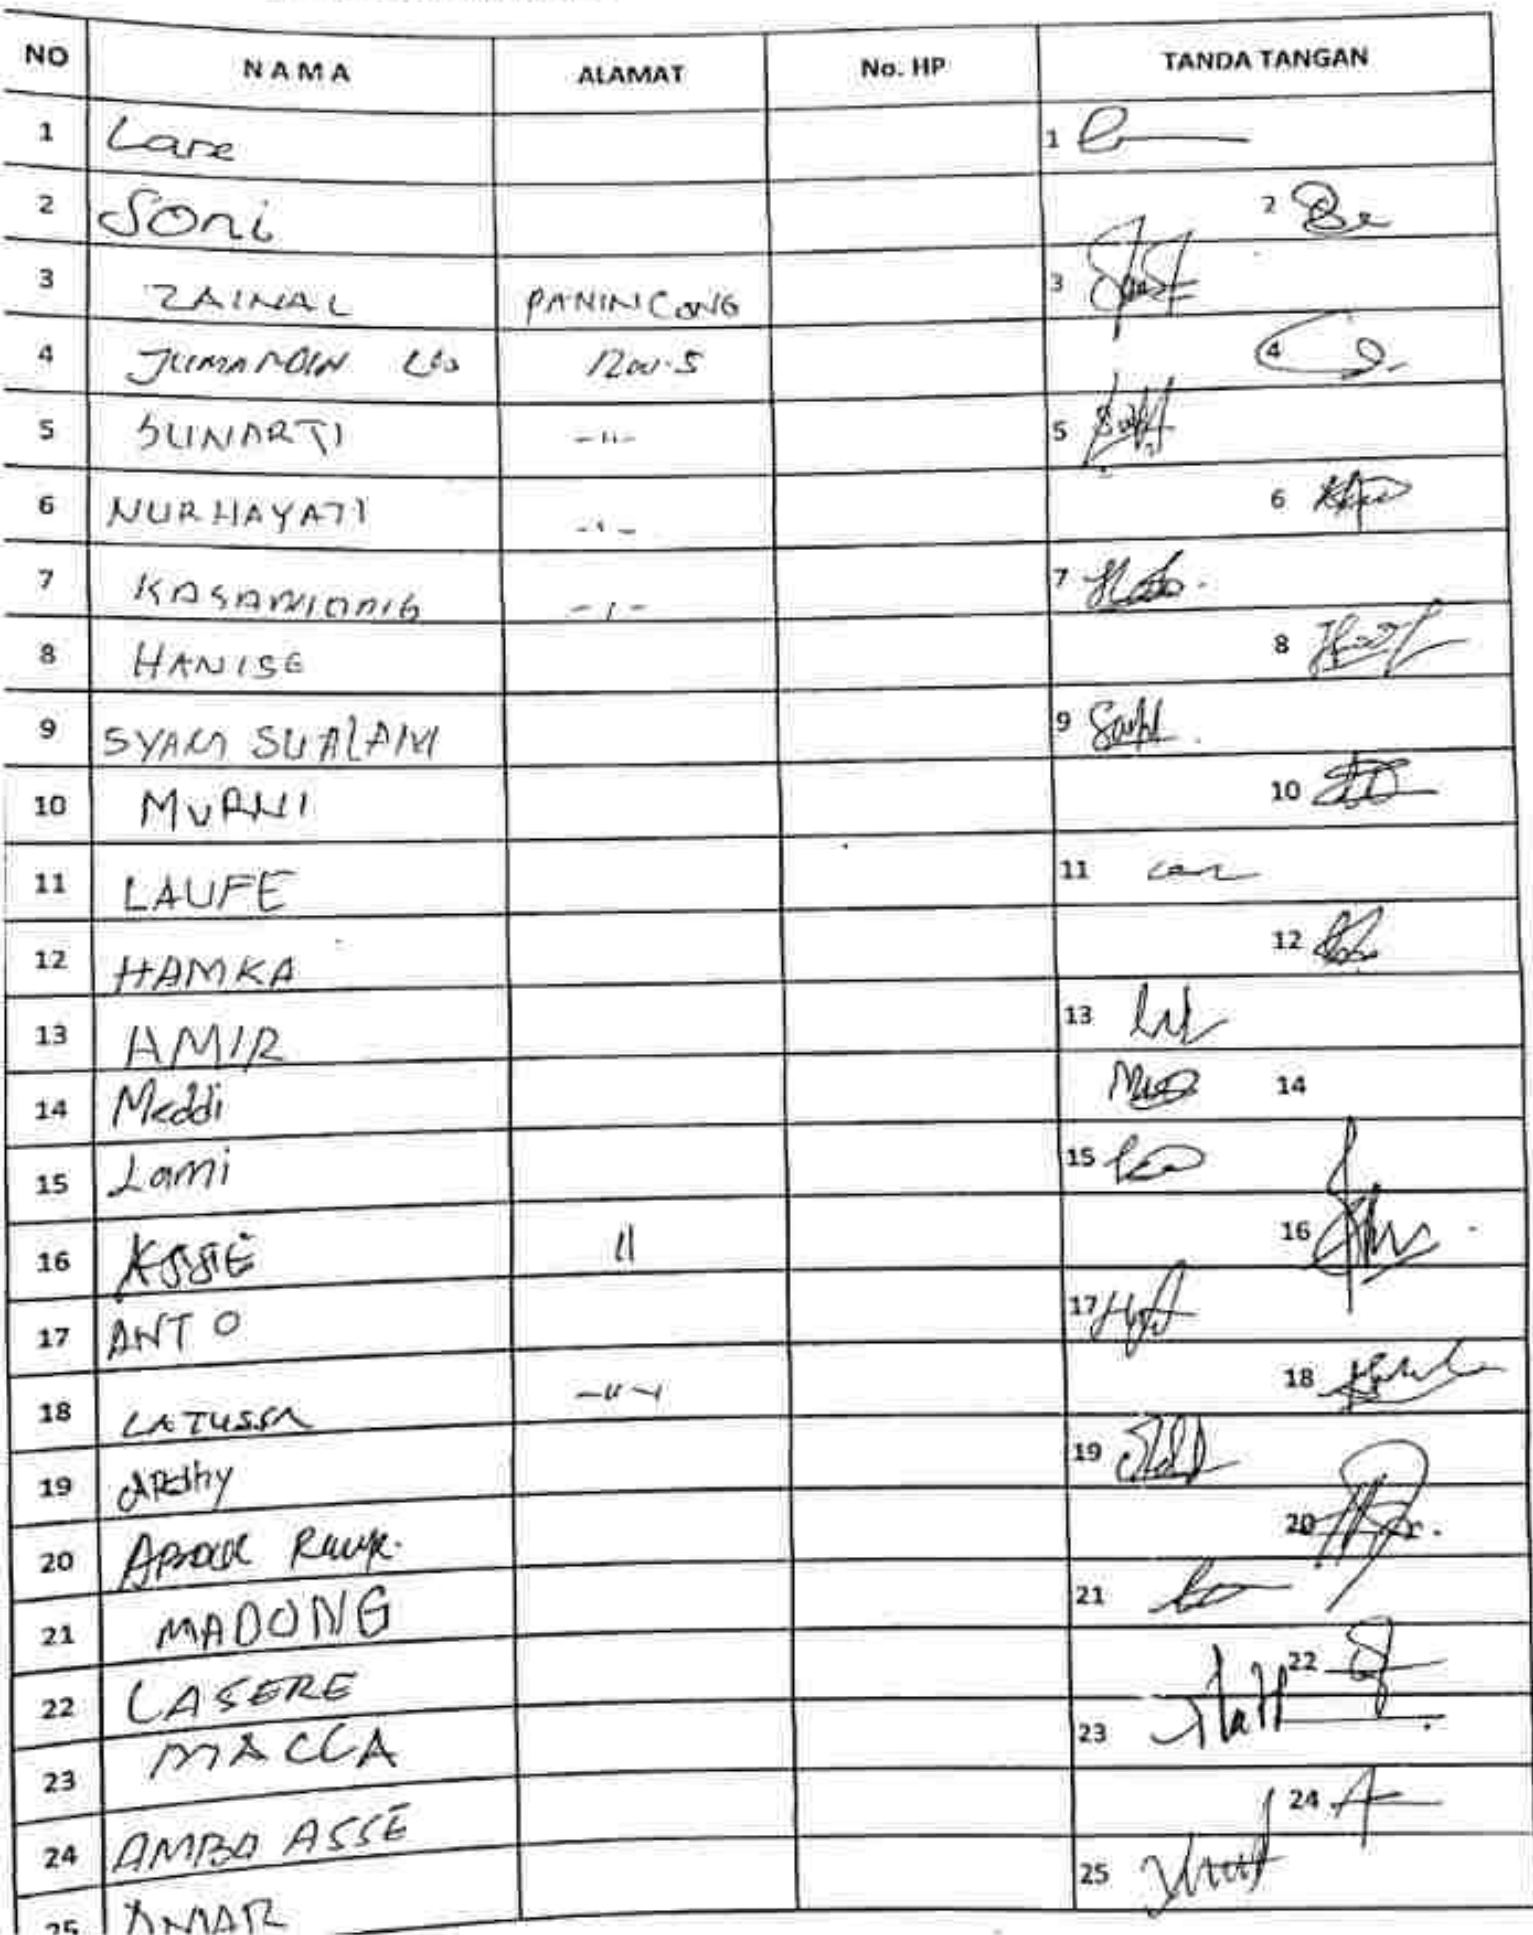 NO NAMA ALAMAT No. HP TANDA TANGAN
1 Lare 1
2 Soni 2
3 ZAINAL PANINCONG 3
4 4
5 SUNARTI -"- 5
6 NURHAYATI -"- 6
7 7
8 HANISE 8
9 SYAM SUALAM 9
10 MURNI 10
11 LAUFE 11
12 HAMKA 12
13 AMIR 13
14 Meddi 14
15 Lami 15
16 ASSE 11 16
17 ANTO 17
18 LATUSSA -"- 18
19 ARdhy 19
20 20
21 MADONG 21
22 LASERE 22
23 MACCA 23
24 AMBA ASSE 24
25 AMAR 25